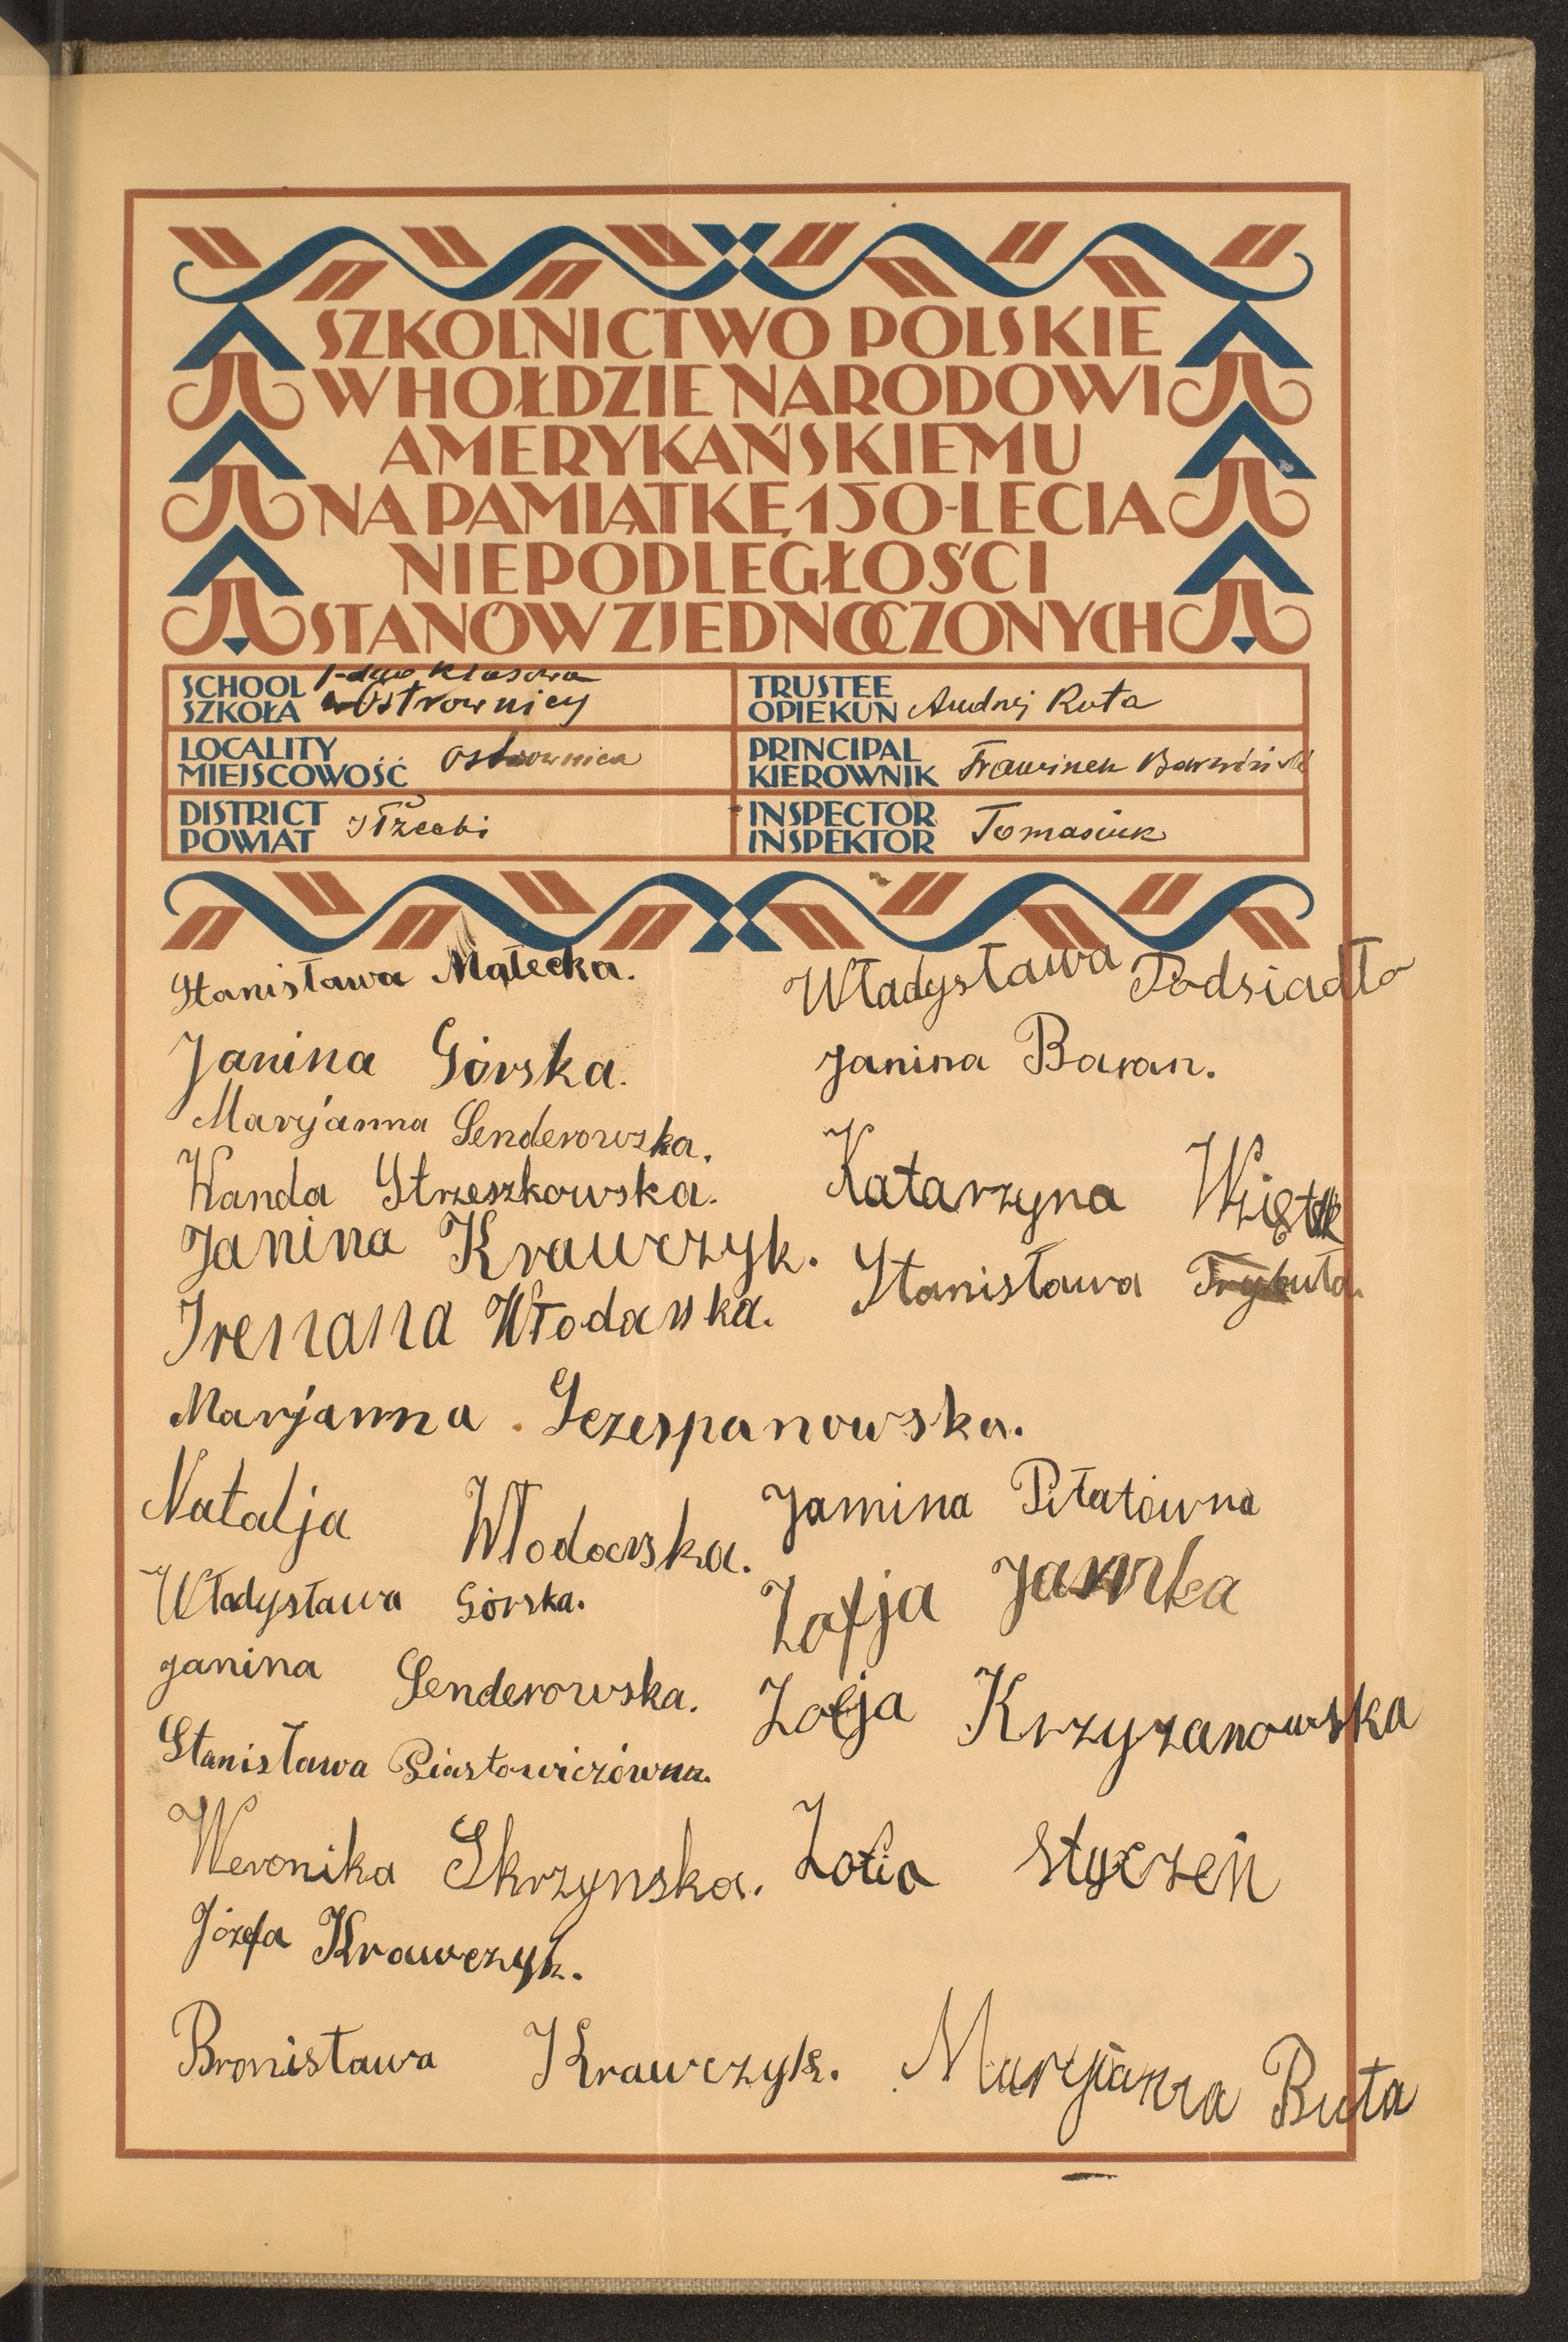 SZKOLNICTWO POLSKIE
W HOŁDZIE NARODOWI
AMERYKAŃSKIEMU
NA PAMIĄTKĘ 150-LECIA
NIEPODLEGŁOŚCI
STANÓW ZJEDNOCZONYCH
SCHOOL
SZKOŁA
klasowa
w Ostrownicy
TRUSTEE
OPIEKUN
Andrzej Ruta
LOCALITY
MIEJSCOWOŚĆ
Ostrownica
PRINCIPAL
KIEROWNIK
DISTRICT
POWIAT
Iłżecki
INSPECTOR
INSPEKTOR
Tomasiuk
Stanisława Małecka.
Janina Górska.
Maryjanna Senderowska.
Wanda Strzeszkowska.
Janina Krawczyk.
Irenana Włodarska.
Marjanna Sczespanowska.
Natalja Włodarska.
Władysława Górska.
Janina Senderowska.
Stanisława Piastowiczówna.
Weronika Skrzynska.
Józefa Krawczyk.
Bronisława Krawczyk.
Władysława Podsiadło
Janina Baran.
Katarzyna Wziętek
Stanisława Trybuła.
Janina Piłatówna
Zofja Jaworka
Zofja Krzyzanowska
Zofia Styczeń
Maryjanna Buta